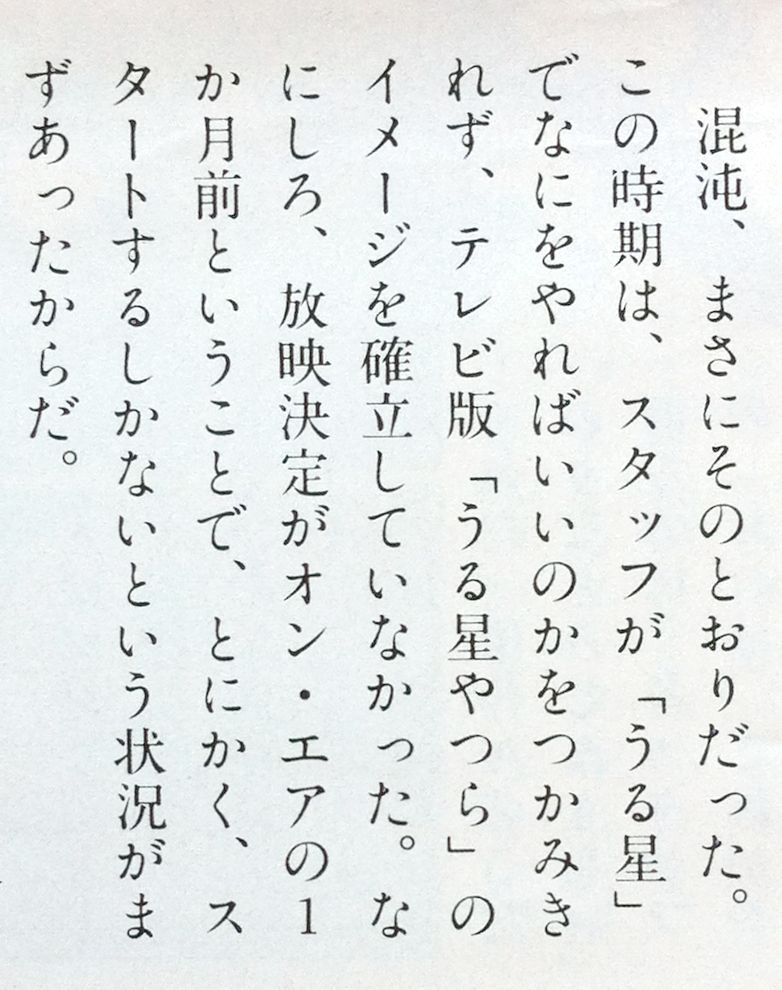 混沌、まさにそのとおりだった。
この時期は、スタッフが「うる星」
でなにをやればいいのかをつかみき
れず、テレビ版「うる星やつら」の
イメージを確立していなかった。な
にしろ、放映決定がオン・エアの1
か月前ということで、とにかく、ス
タートするしかないという状況がま
ずあったからだ。